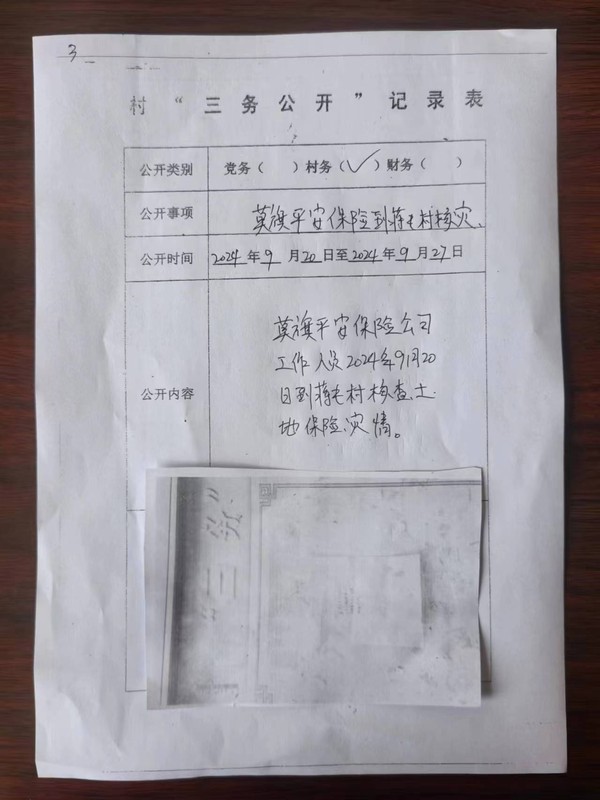 3
村“三务公开”记录表
公开类别 党务（ ）村务（✓）财务（ ）
公开事项 莫旗平安保险到蒋屯村核灾、
公开时间 2024年9月20日至2024年9月27日
公开内容
莫旗平安保险公司
工作人员2024年9月20
日到蒋屯村核查土
地保险灾情。
“三务”